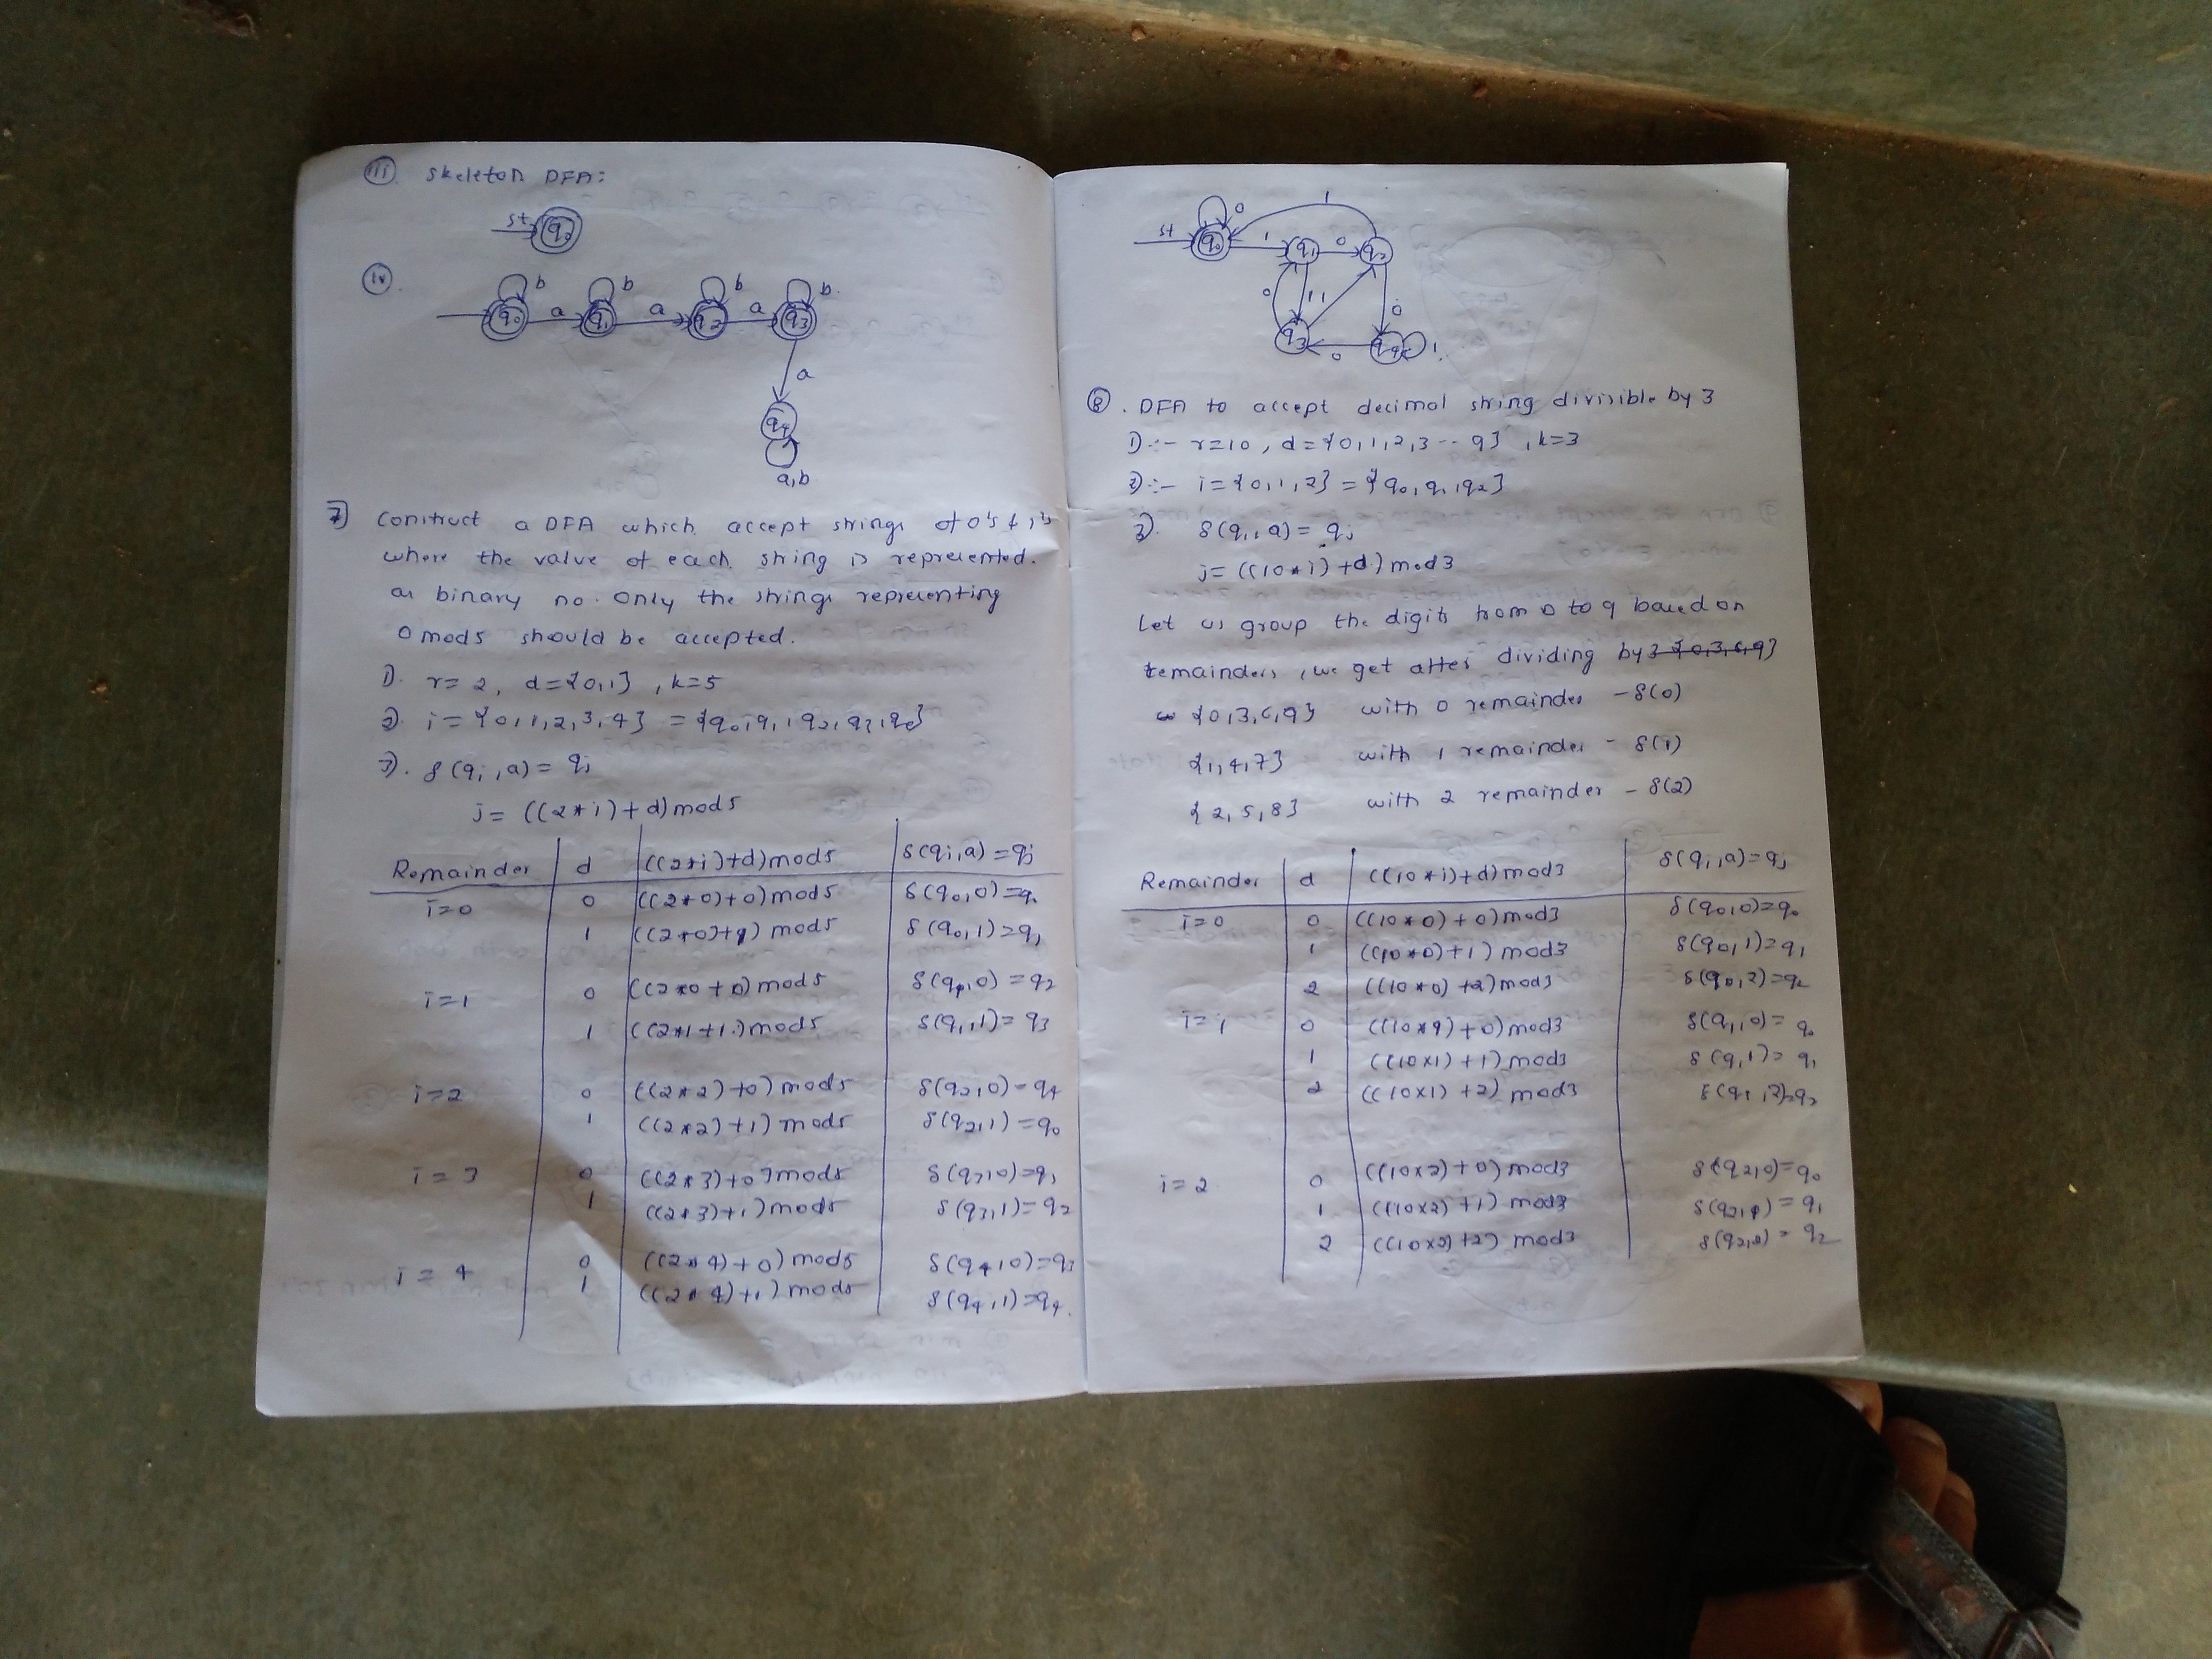 iii. Skeleton DFA:
st
q0
iv.
b b b b.
q0 a q1 a q2 a q3
a
q4
a,b
7) Construct a DFA which accept strings of 0's & 1's
where the value of each string is represented.
as binary no. Only the strings representing
0 mod5 should be accepted.
1). r= 2, d={0,1} , k=5
2). i={0,1,2,3,4} = {q0,q1,q2,q3,q4}
3). δ(qi,a)= qj
j= ((2*i)+d)mod5
Remainder d ((2*i)+d)mod5 δ(qi,a)=qj
i=0 0 ((2*0)+0)mod5 δ(q0,0)=q0
1 ((2*0)+1) mod5 δ(q0,1)=q1
i=1 0 ((2*0+0)mod5 δ(q1,0)=q2
1 ((2*1+1.)mod5 δ(q1,1)= q3
i=2 0 ((2*2)+0)mod5 δ(q2,0)=q4
1 ((2*2)+1) mod5 δ(q2,1)=q0
i=3 0 ((2*3)+0)mod5 δ(q3,0)=q1
1 ((2*3)+1)mod5 δ(q3,1)=q2
i=4 0 ((2*4)+0)mod5 δ(q4,0)=q3
1 ((2*4)+1)mod5 δ(q4,1)=q4.
0 1
st q0 1 q1 0 q2
0 1 1 0
q3 0 q4 1.
8. DFA to accept decimal string divisible by 3
1):- r=10, d={0,1,2,3--9} , k=3
2):- i={0,1,2} = {q0,q1,q2}
3). δ(qi,a)= qj
j= ((10*i)+d)mod3
Let us group the digits from 0 to 9 based on
remainders, we get after dividing by 3 {0,3,6,9}
{0,3,6,9} with 0 remainder -δ(0)
{1,4,7} with 1 remainder - δ(1)
{2,5,8} with 2 remainder - δ(2)
Remainder d ((10*i)+d)mod3 δ(qi,a)=qj
i=0 0 ((10*0)+0)mod3 δ(q0,0)=q0
1 ((10*0)+1) mod3 δ(q0,1)=q1
2 ((10*0)+2)mod3 δ(q0,2)=q2
i=1 0 ((10*9)+0)mod3 δ(q1,0)= q0
1 ((10x1)+1)mod3 δ(q,1)= q1
2 ((10x1)+2) mod3 δ(q1,2)=q2
i=2 0 ((10x2)+0)mod3 δ(q2,0)=q0
1 ((10x2)+1)mod3 δ(q2,1)=q1
2 ((10x2)+2) mod3 δ(q2,2)=q2